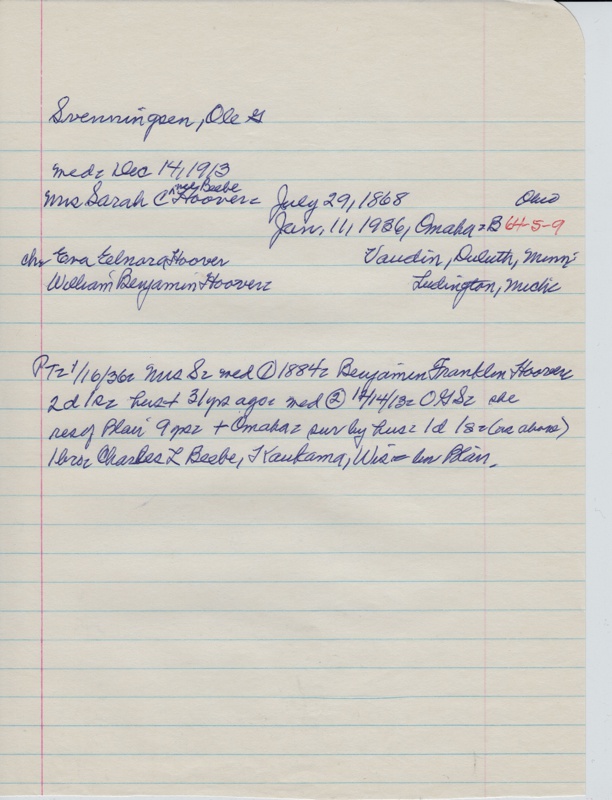 Svenningsen, Ole G
med: Dec 14, 1913
nee Beebe
Mrs Sarah C Hoover: July 29, 1868 Ohio
Jan. 11, 1936, Omaha = B 64-5-9
ch: Eva Elnora Hoover Vaudin, Duluth, Minn:
William Benjamin Hoover: Ludington, Mich:
PT: 1/16/36: Mrs S: med ① 1884: Benjamin Franklin Hoover
2d 1s: hus + 31 yrs ago: med ② 12/14/13: OGS: she
res of Blair 9 yrs: + Omaha: sur by hus: 1d 1s: (as above)
1 bro: Charles L Beebe, Kaukama, Wis = bur Blair.